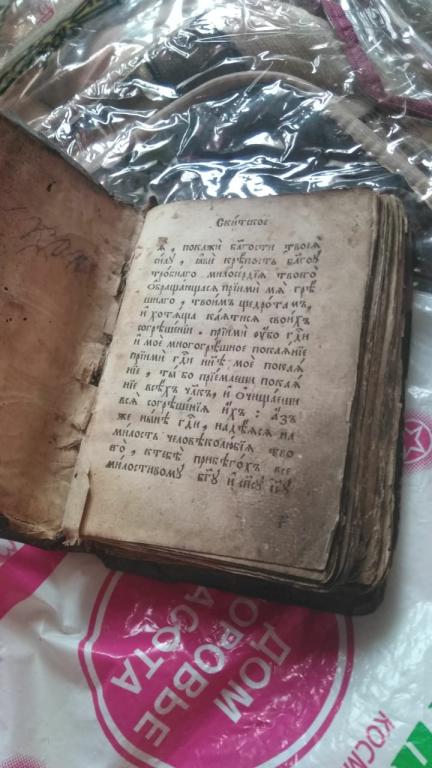 Скитское
А҆, покажи бл҃гости твоея̀
силу, ꙗ҆ви крѣпость бл҃гоу
тробнаго милосердїя твоегѡ̀
обращающася прїими мѧ̀ грѣ
шнаго, твои́мъ щедротамъ,
и҆ хотѧща каѧтися своихъ
согрѣшенїи. прїими ѹ҆бо гдⷭ҇и
и҆ моѐ многогрѣшное покаянїе
прїими гдⷭ҇и нн҃ѣ моѐ покая
нїе, ты̀ бо прїемлеши покая
нїе всѣхъ чл҃къ, и҆ ѻ҆чищаеши
всѧ̀ согрѣшенїѧ и҆хъ : а҆зъ
же нынѣ гдⷭ҇и, надѣяся на
милость человѣколюбїя тво
его̀, ктебѣ̀ прибѣгохъ все
милостивому бг҃у и҆ сп҃су і҆с҃у
ДОМ
ЗДОРОВЬЕ
КРАСОТА
КОСМ